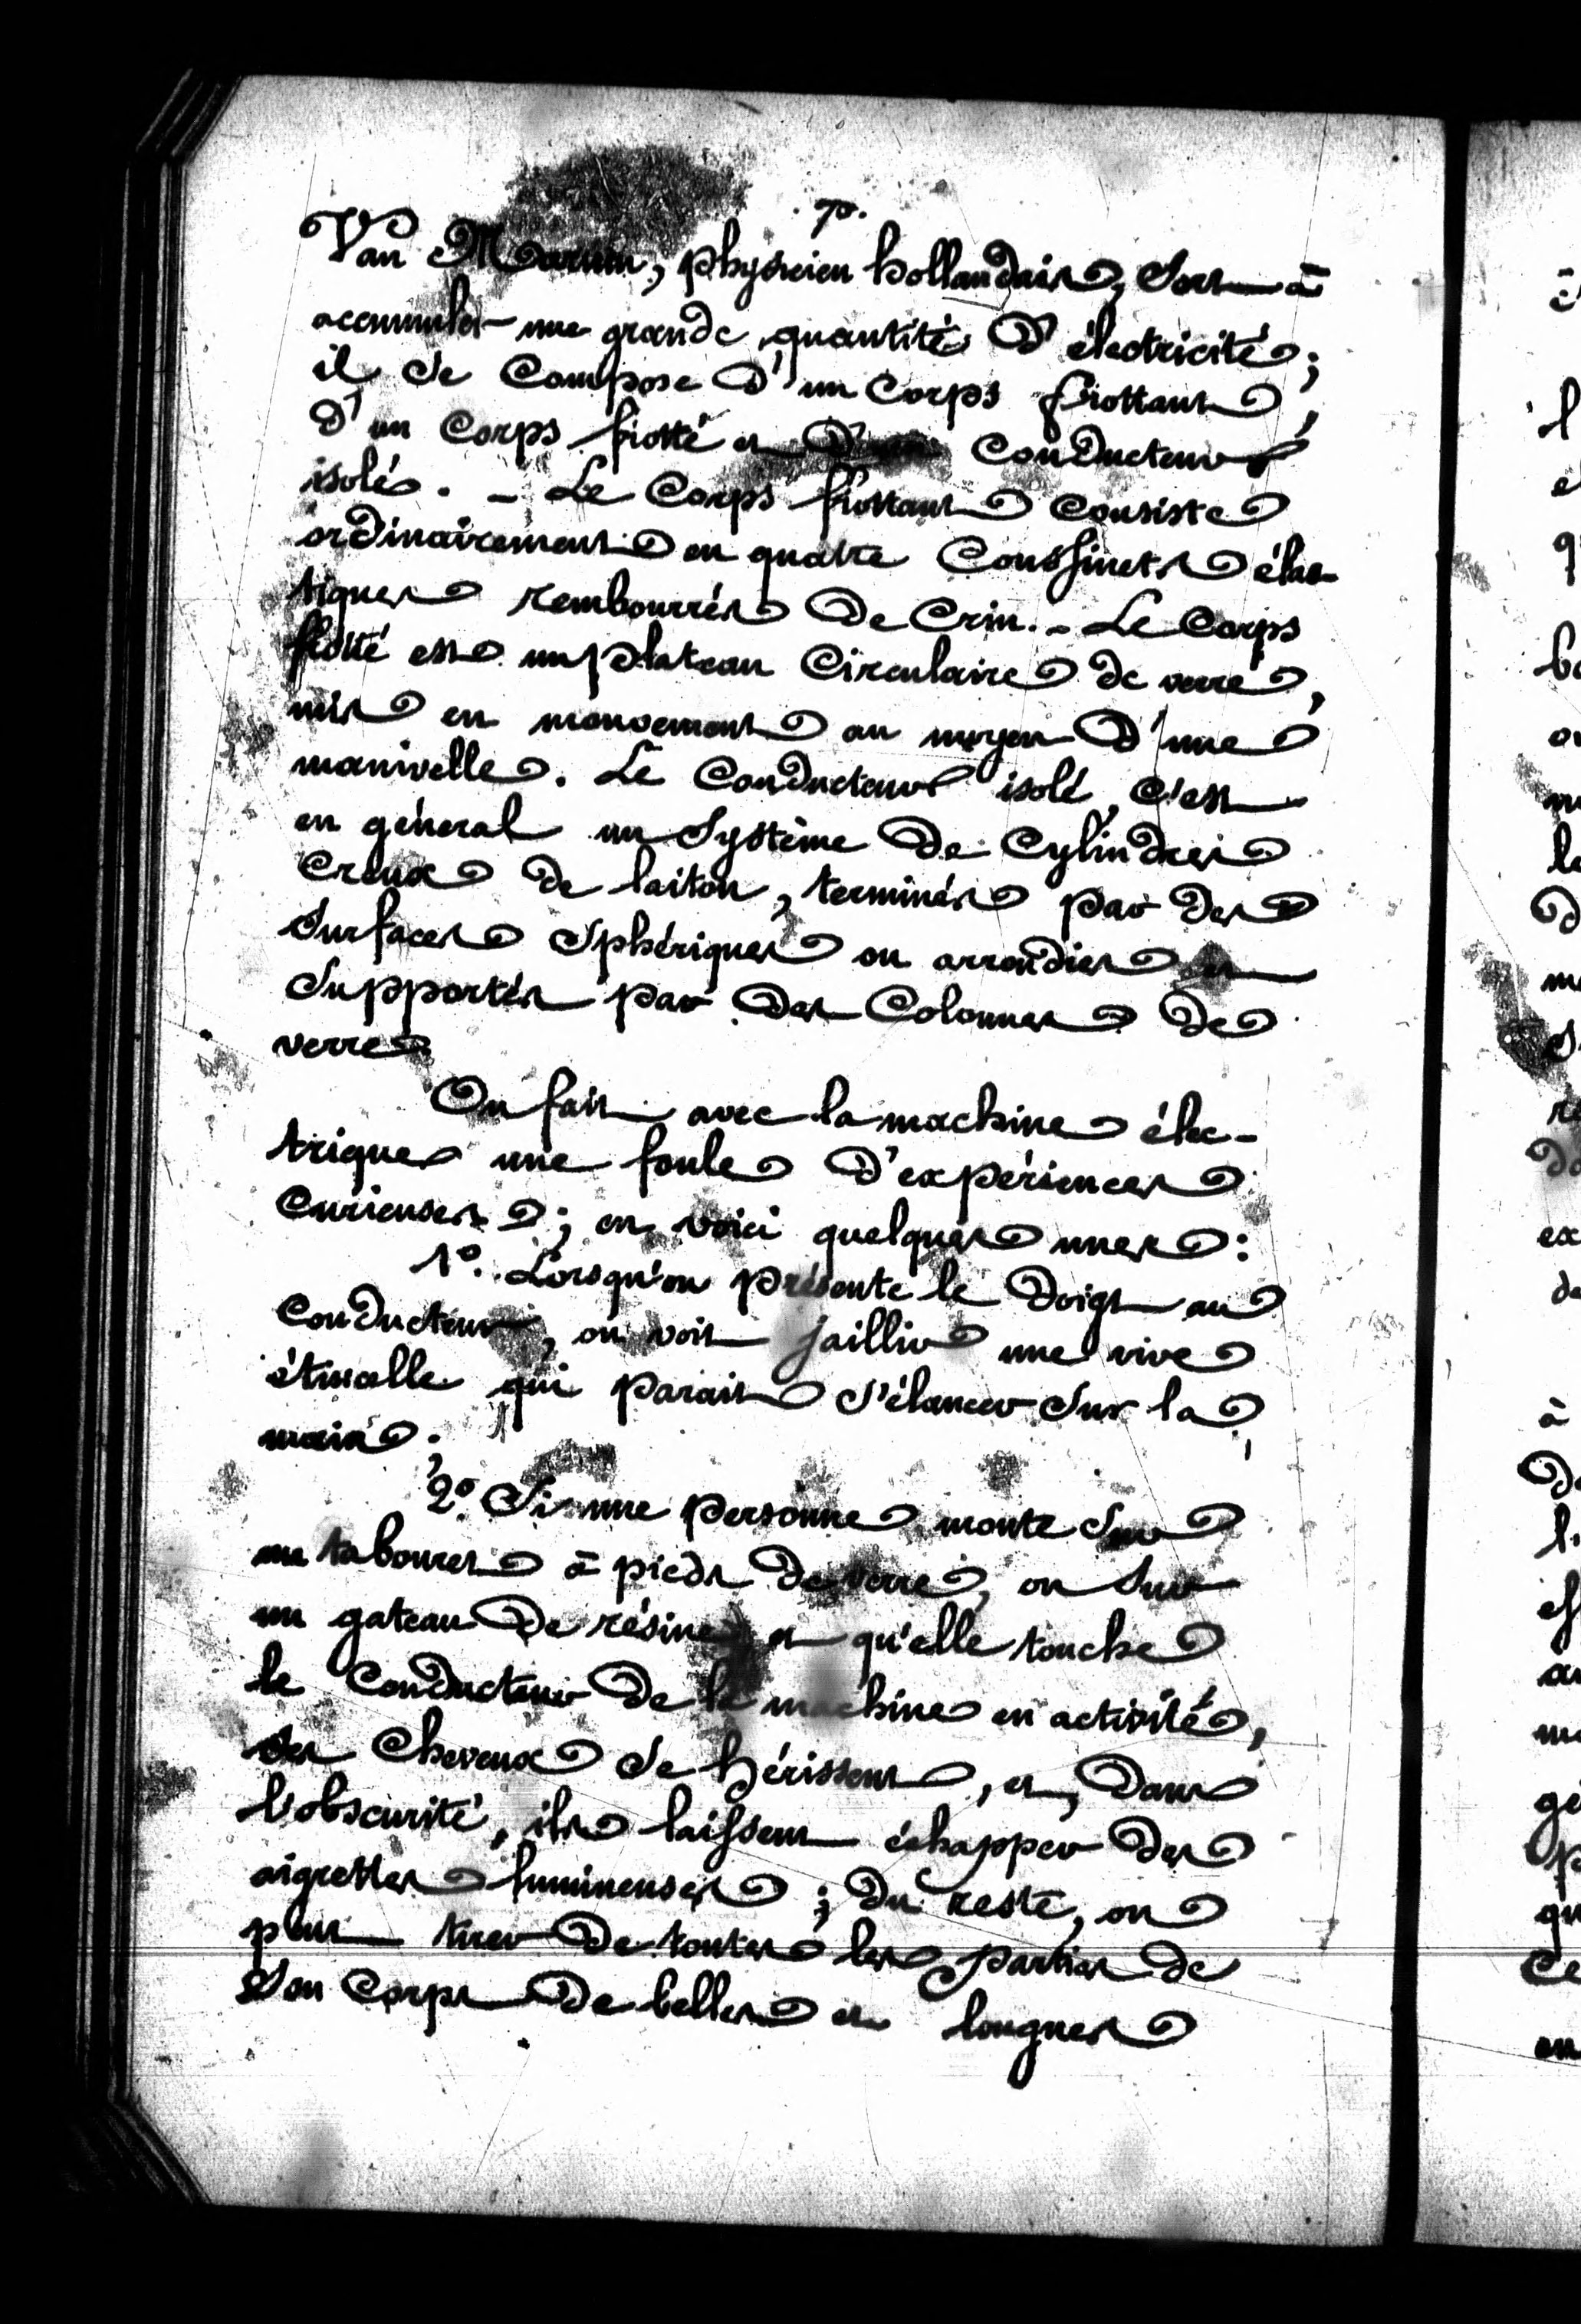 70.
Van Marum, physicien hollandais, sert à
accumuler une grande quantité d'électricité;
il se compose d'un corps frottant,
d'un corps frotté et d'un conducteur
isolé. - Le corps frottant consiste
ordinairement en quatre coussinets élas-
tiques rembourrés de crin. - Le corps
frotté est un plateau circulaire de verre,
mis en mouvement au moyen d'une
manivelle. Le conducteur isolé, c'est
en général un système de cylindres
creux de laiton, terminés par des
surfaces sphériques ou arrondies et
supportés par des colonnes de
verre.
On fait avec la machine élec-
trique une foule d'expériences
curieuses; en voici quelques unes:
1º. Lorsqu'on présente le doigt au
conducteur, on voit jaillir une vive
étincelle qui parait s'élancer sur la
main;
2º. Si une personne monte sur
un tabouret à pieds de verre, ou sur
un gateau de résine, et qu'elle touche
le conducteur de la machine en activité,
ses cheveux se hérissent, et, dans
l'obscurité, ils laissent échapper des
aigrettes lumineuses; du reste, on
peut tirer de toutes les parties de
son corps de belles et longues